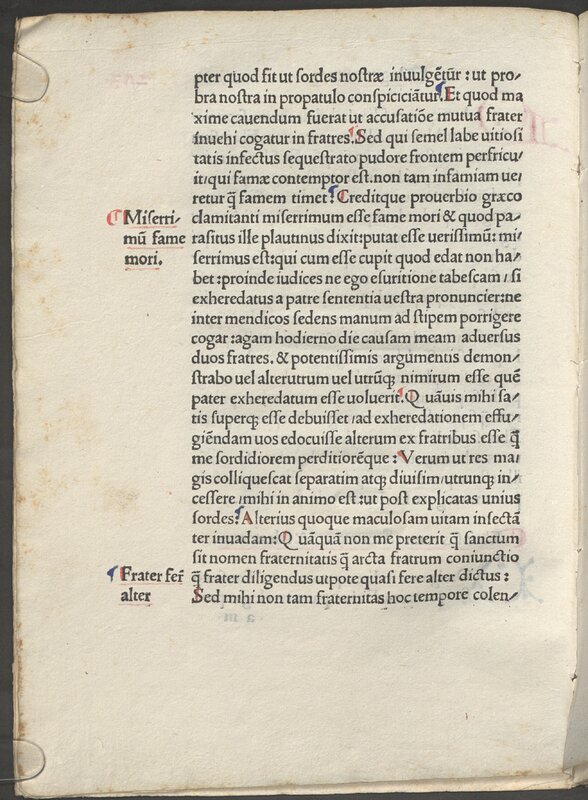 pter quod fit ut sordes nostræ inuulgẽtur : ut pro/
bra nostra in propatulo conspiciciãtur. Et quod ma
xime cauendum fuerat ut accusatiõe mutua frater
inuehi cogatur in fratres. Sed qui semel labe uitiosi
tatis infectus sequestrato pudore frontem perfricu/
it: qui famæ contemptor est. non tam infamiam ue/
retur q̃ famem timet: Creditque prouerbio græco
Miserri/
mũ fame
mori.
clamitanti miserrimum esse fame mori & quod pa/
rasitus ille plautinus dixit: putat esse uerissimũ: mi/
serrimus est: qui cum esse cupit quod edat non ha/
bet : proinde iudices ne ego esuritione tabescam / si
exheredatus a patre sententia uestra pronuncier: ne
inter mendicos sedens manum ad stipem porrigere
cogar : agam hodierno die causam meam aduersus
duos fratres. & potentissimis argumentis demon/
strabo uel alterutrum uel utrũq; nimirum esse quẽ
pater exheredatum esse uoluerit. Q uãuis mihi sa/
tis superq; esse debuisset / ad exheredationem effu/
giẽndam uos edocuisse alterum ex fratribus esse q̃
me sordidiorem perditiorẽque : Verum ut res ma/
gis colliquescat separatim atq; diuisim / utrunq; in/
cessere / mihi in animo est : ut post explicatas unius
sordes: Alterius quoque maculosam uitam insectã
ter inuadam: Q uãquã non me preterit q̃ sanctum
sit nomen fraternitatis q̃ arcta fratrum coniunctio
Frater fer̃
alter
q̃ frater diligendus utpote quasi fere alter dictus :
Sed mihi non tam fraternitas hoc tempore colen/